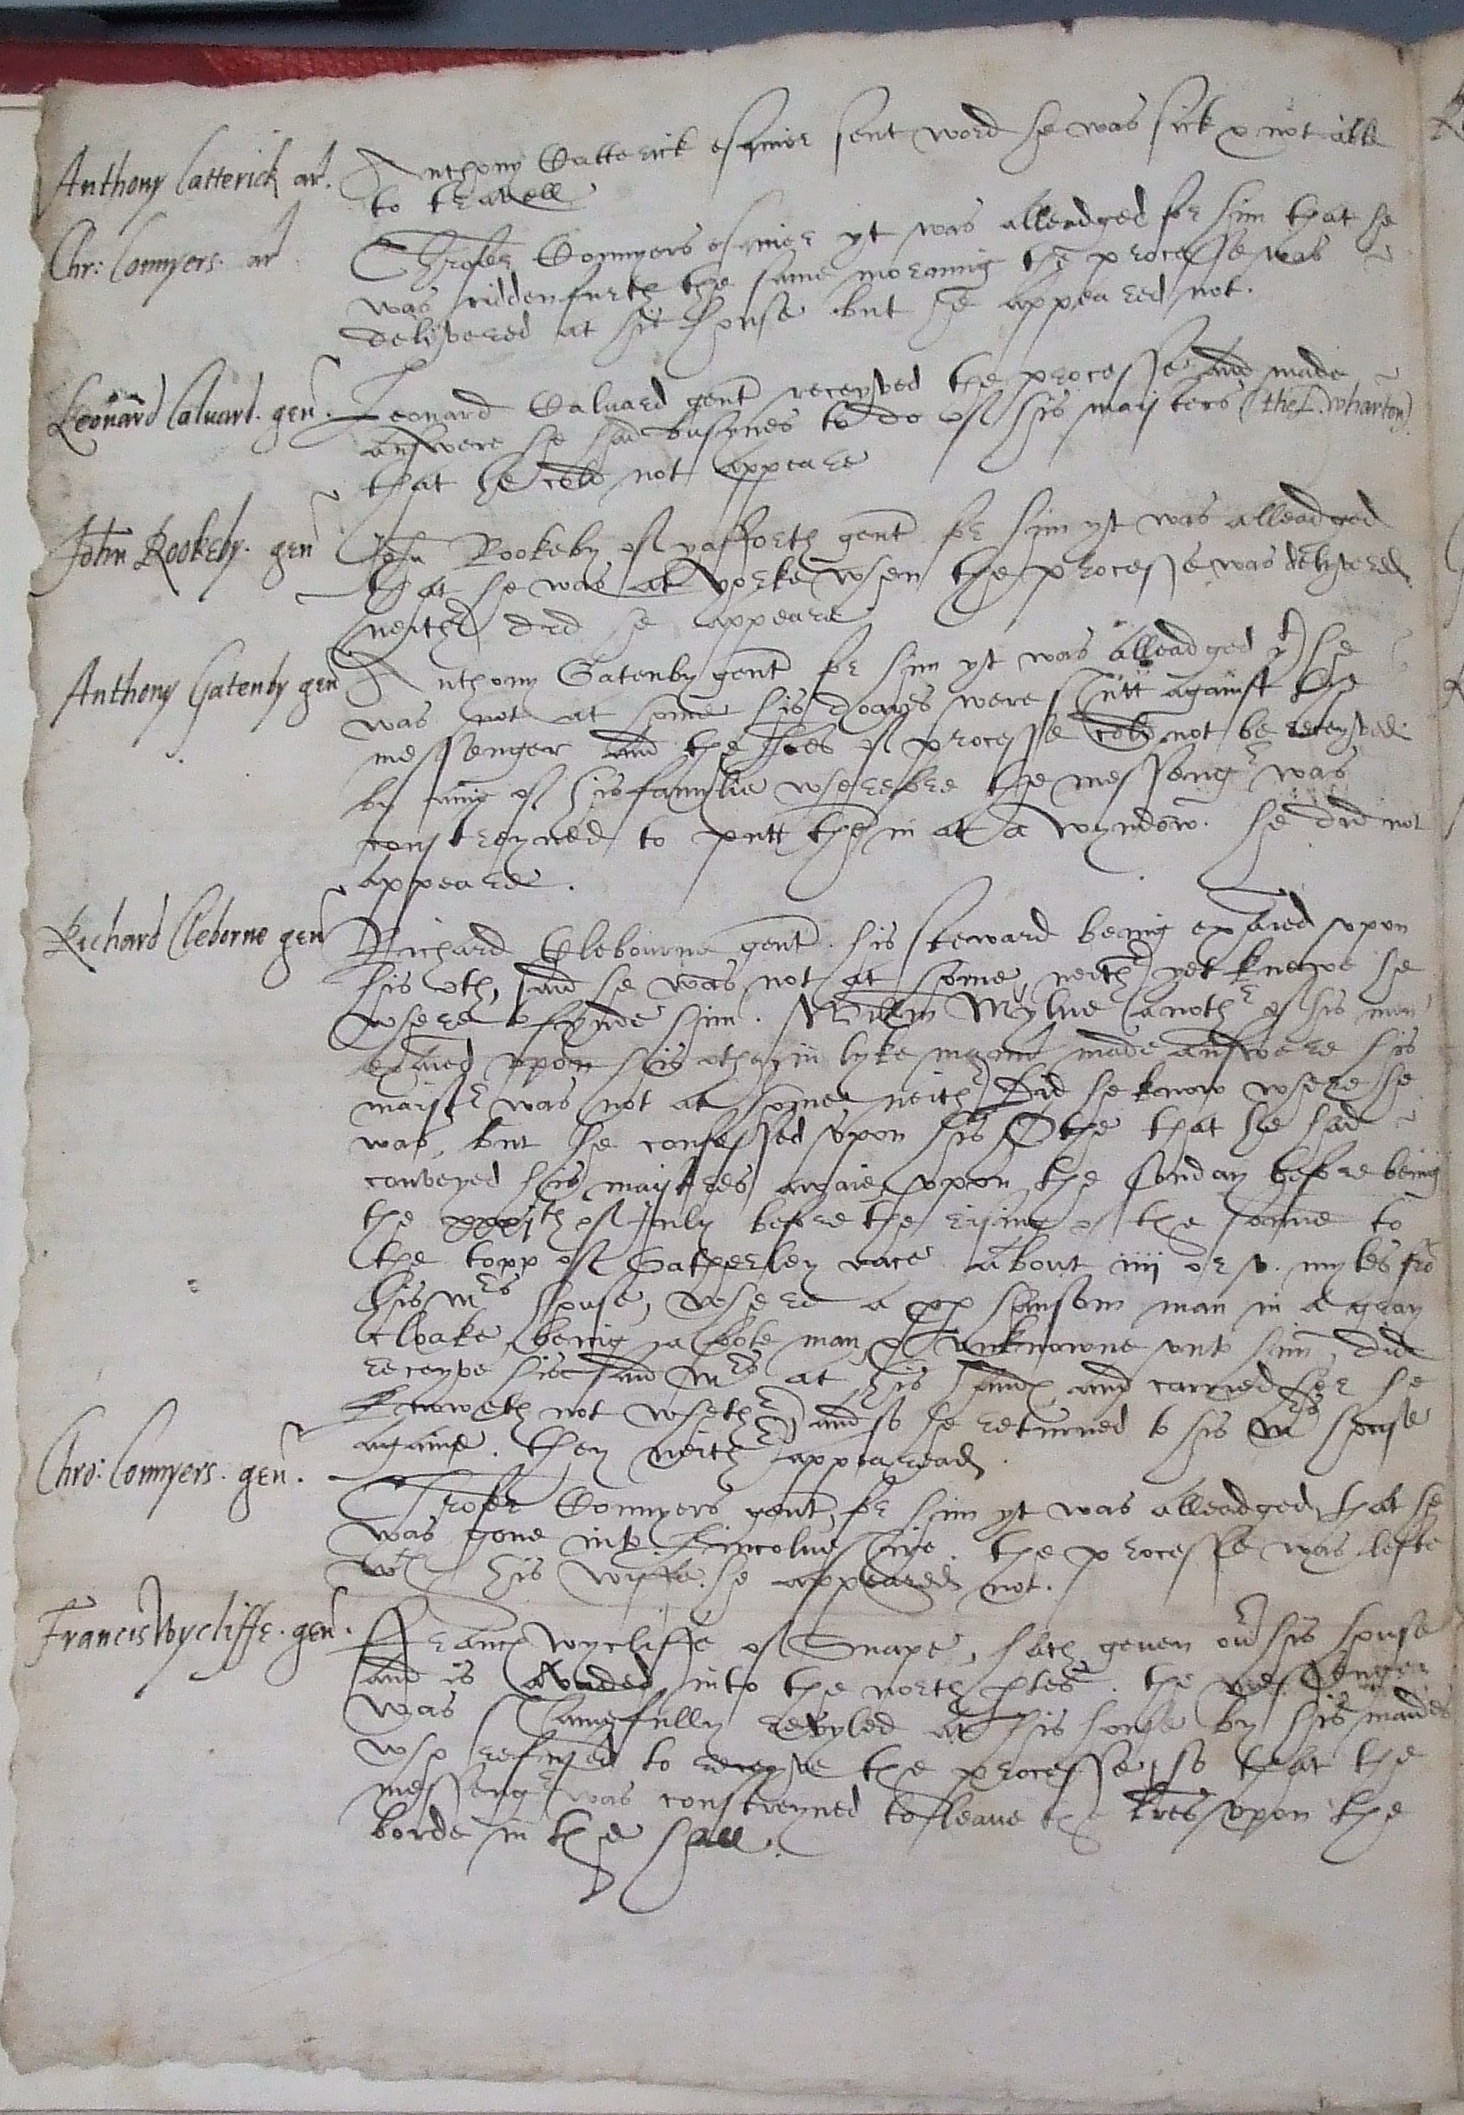 Anthony Catterick ar. Anthony Catterick esquier sent word he was sick & not able
to travell
Chr: Connyers. ar Chrofer Connyers esquier yt was alleadged for him that he
was ridden furth the same morening the processe was
delyvered at his house but he appeared not.
Leonard Caluard. gen. Leonard Caluard gent receyved the processe and made
answere he had busynes to do of his maisters (the L. wharton)
that he cold not appeare
John Rookeby. gen John Rookeby of yafforth gent for him yt was alleadged
that he was at yorke when the processe was delyvered
neither did he appeare
Anthony Gatenby gen Anthony Gatenby gent for him yt was alleadged yt he
was not at home his doares were shutt against the
messenger and the lres of processe cold not be receyved
by anie of his familie wherefore the messeng was
constreyned to putt them in at a wyndow. he did not
appeare.
Richard Cleborne gen Richard Clebourne gent. his steward being exaied vpon
his oth, said he was not at home, neither yet knewe he
where to fynde him. Willm Mylne anothr of his men
exaied vpon his othe in lyke manner made answere his
maistr was not at home neither did he know where he
was, but he confessed vpon his Othe that he had
conveyed his maistres awaie vpon the sonday before being
the xxxjth of July before the rising of the sonne to
the topp of Gatherley race about iiii or v. myles fro
his mrs house, where a hansom man in a gray
cloake being a fote man & vnknowne vnto him, did
receyve his said mrs at his hand and carried her he
knoweth not whether and so he returned to his mrs house
againe. they neither appearead.
Chro: Connyers. gen. Chrofer Connyers gent, for him yt was alleadged that he
was gone into Lincolneshire. the processe was lefte
wth his wyffe. he appeared not.
Francis Wycliffe. gen. Francis wycliffe of Snape, hath geven ou his house
and is avoided into the north ptes. the messenger
was shamfully revyled at his house by his maides
who refused to receyve the processe, so that the
messeng was constreyned to leave the lres vpon the
borde in the hall.